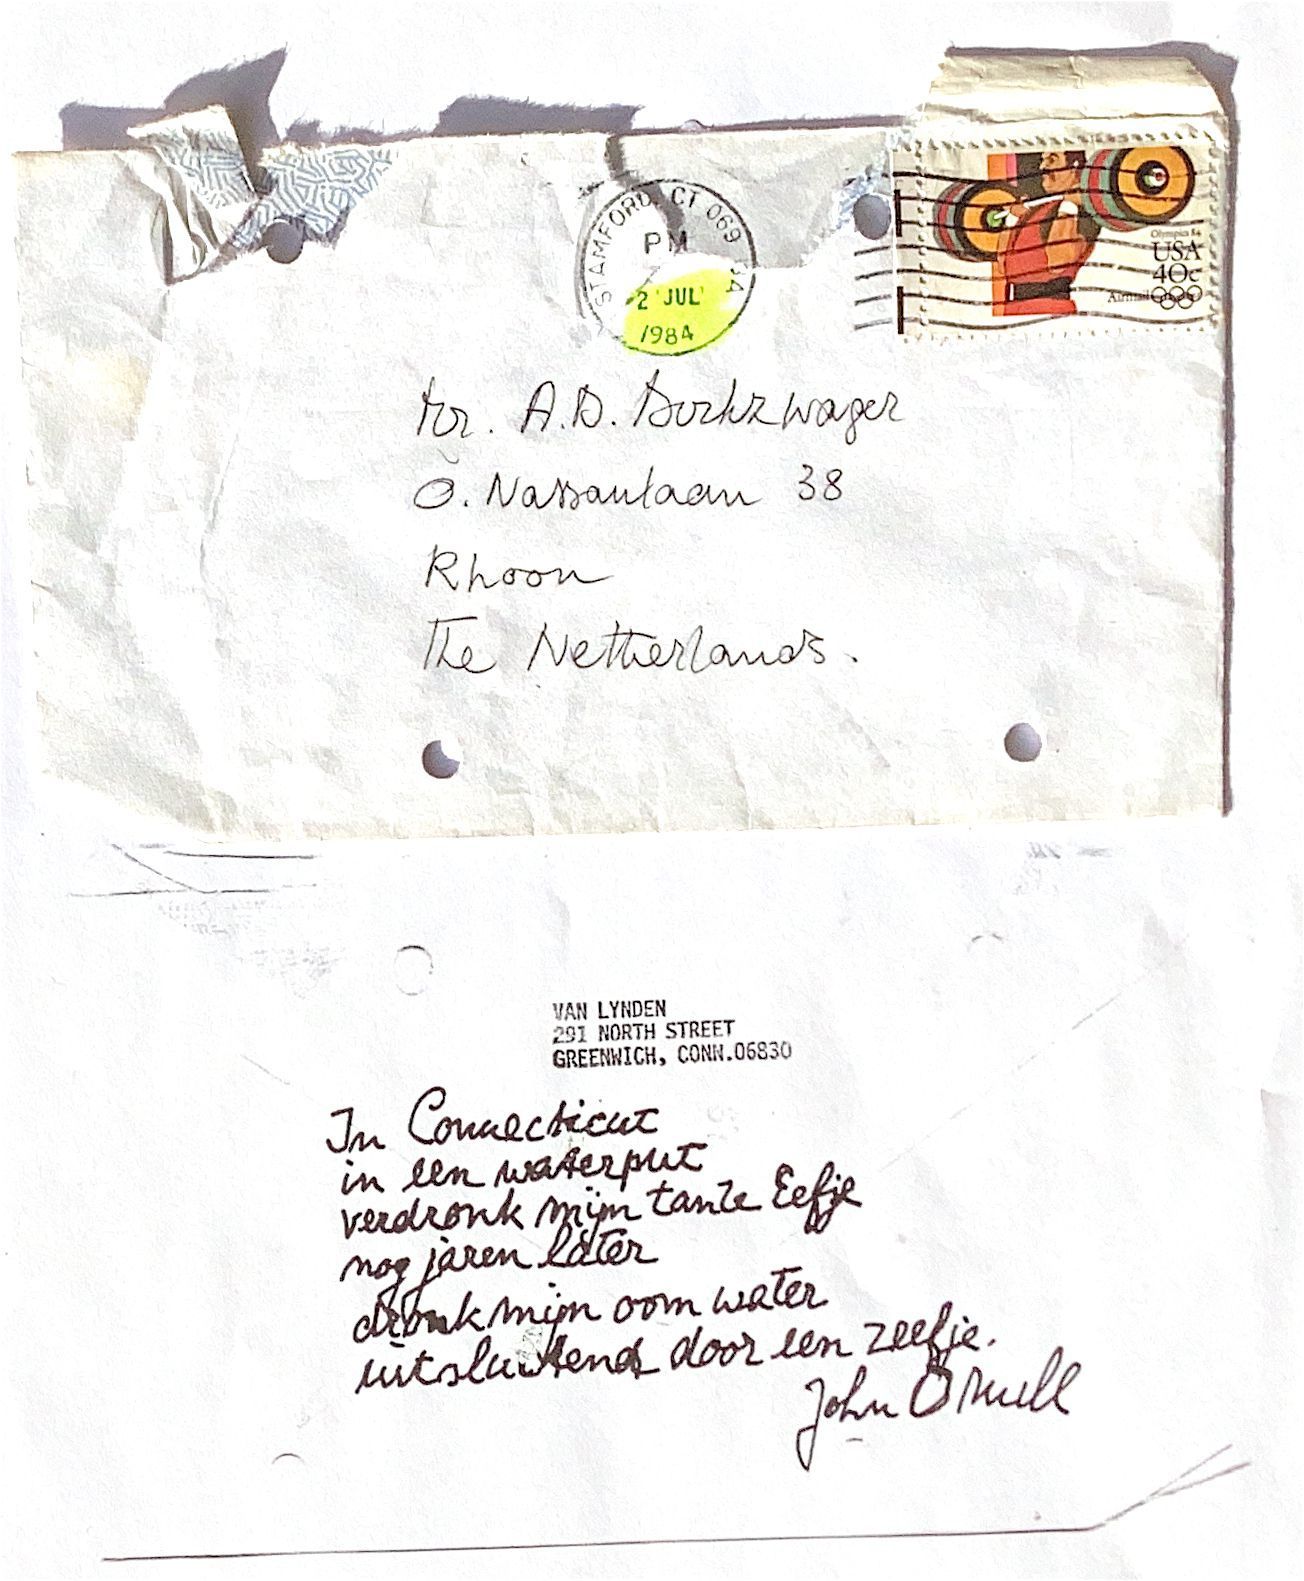 STAMFORD, CT 069
PM
2 JUL
1984
Olympics 84
USA
40c
Airmail
Mr. A.D. Borkzwager
O. Nassaulaan 38
Rhoon
The Netherlands.
VAN LYNDEN
291 NORTH STREET
GREENWICH, CONN.06830
In Connecticut
in een waterput
verdronk mijn tante Eefje
nog jaren later
dronk mijn oom water
uitsluitend door een zeefje.
John O'Mill